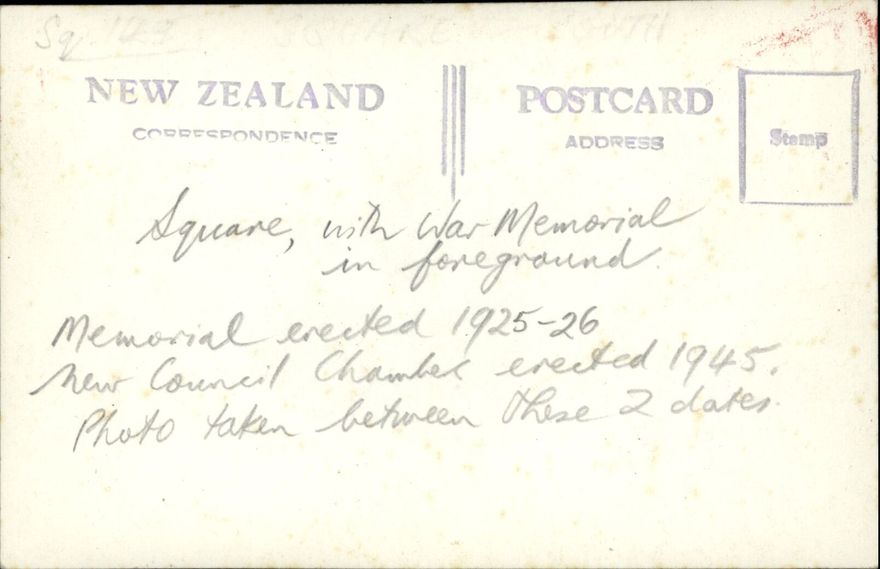 Sq 147
NEW ZEALAND POSTCARD
CORRESPONDENCE ADDRESS
Stamp
Square, with War Memorial
in foreground.
Memorial erected 1925-26
New Council Chamber erected 1945.
Photo taken between these 2 dates.